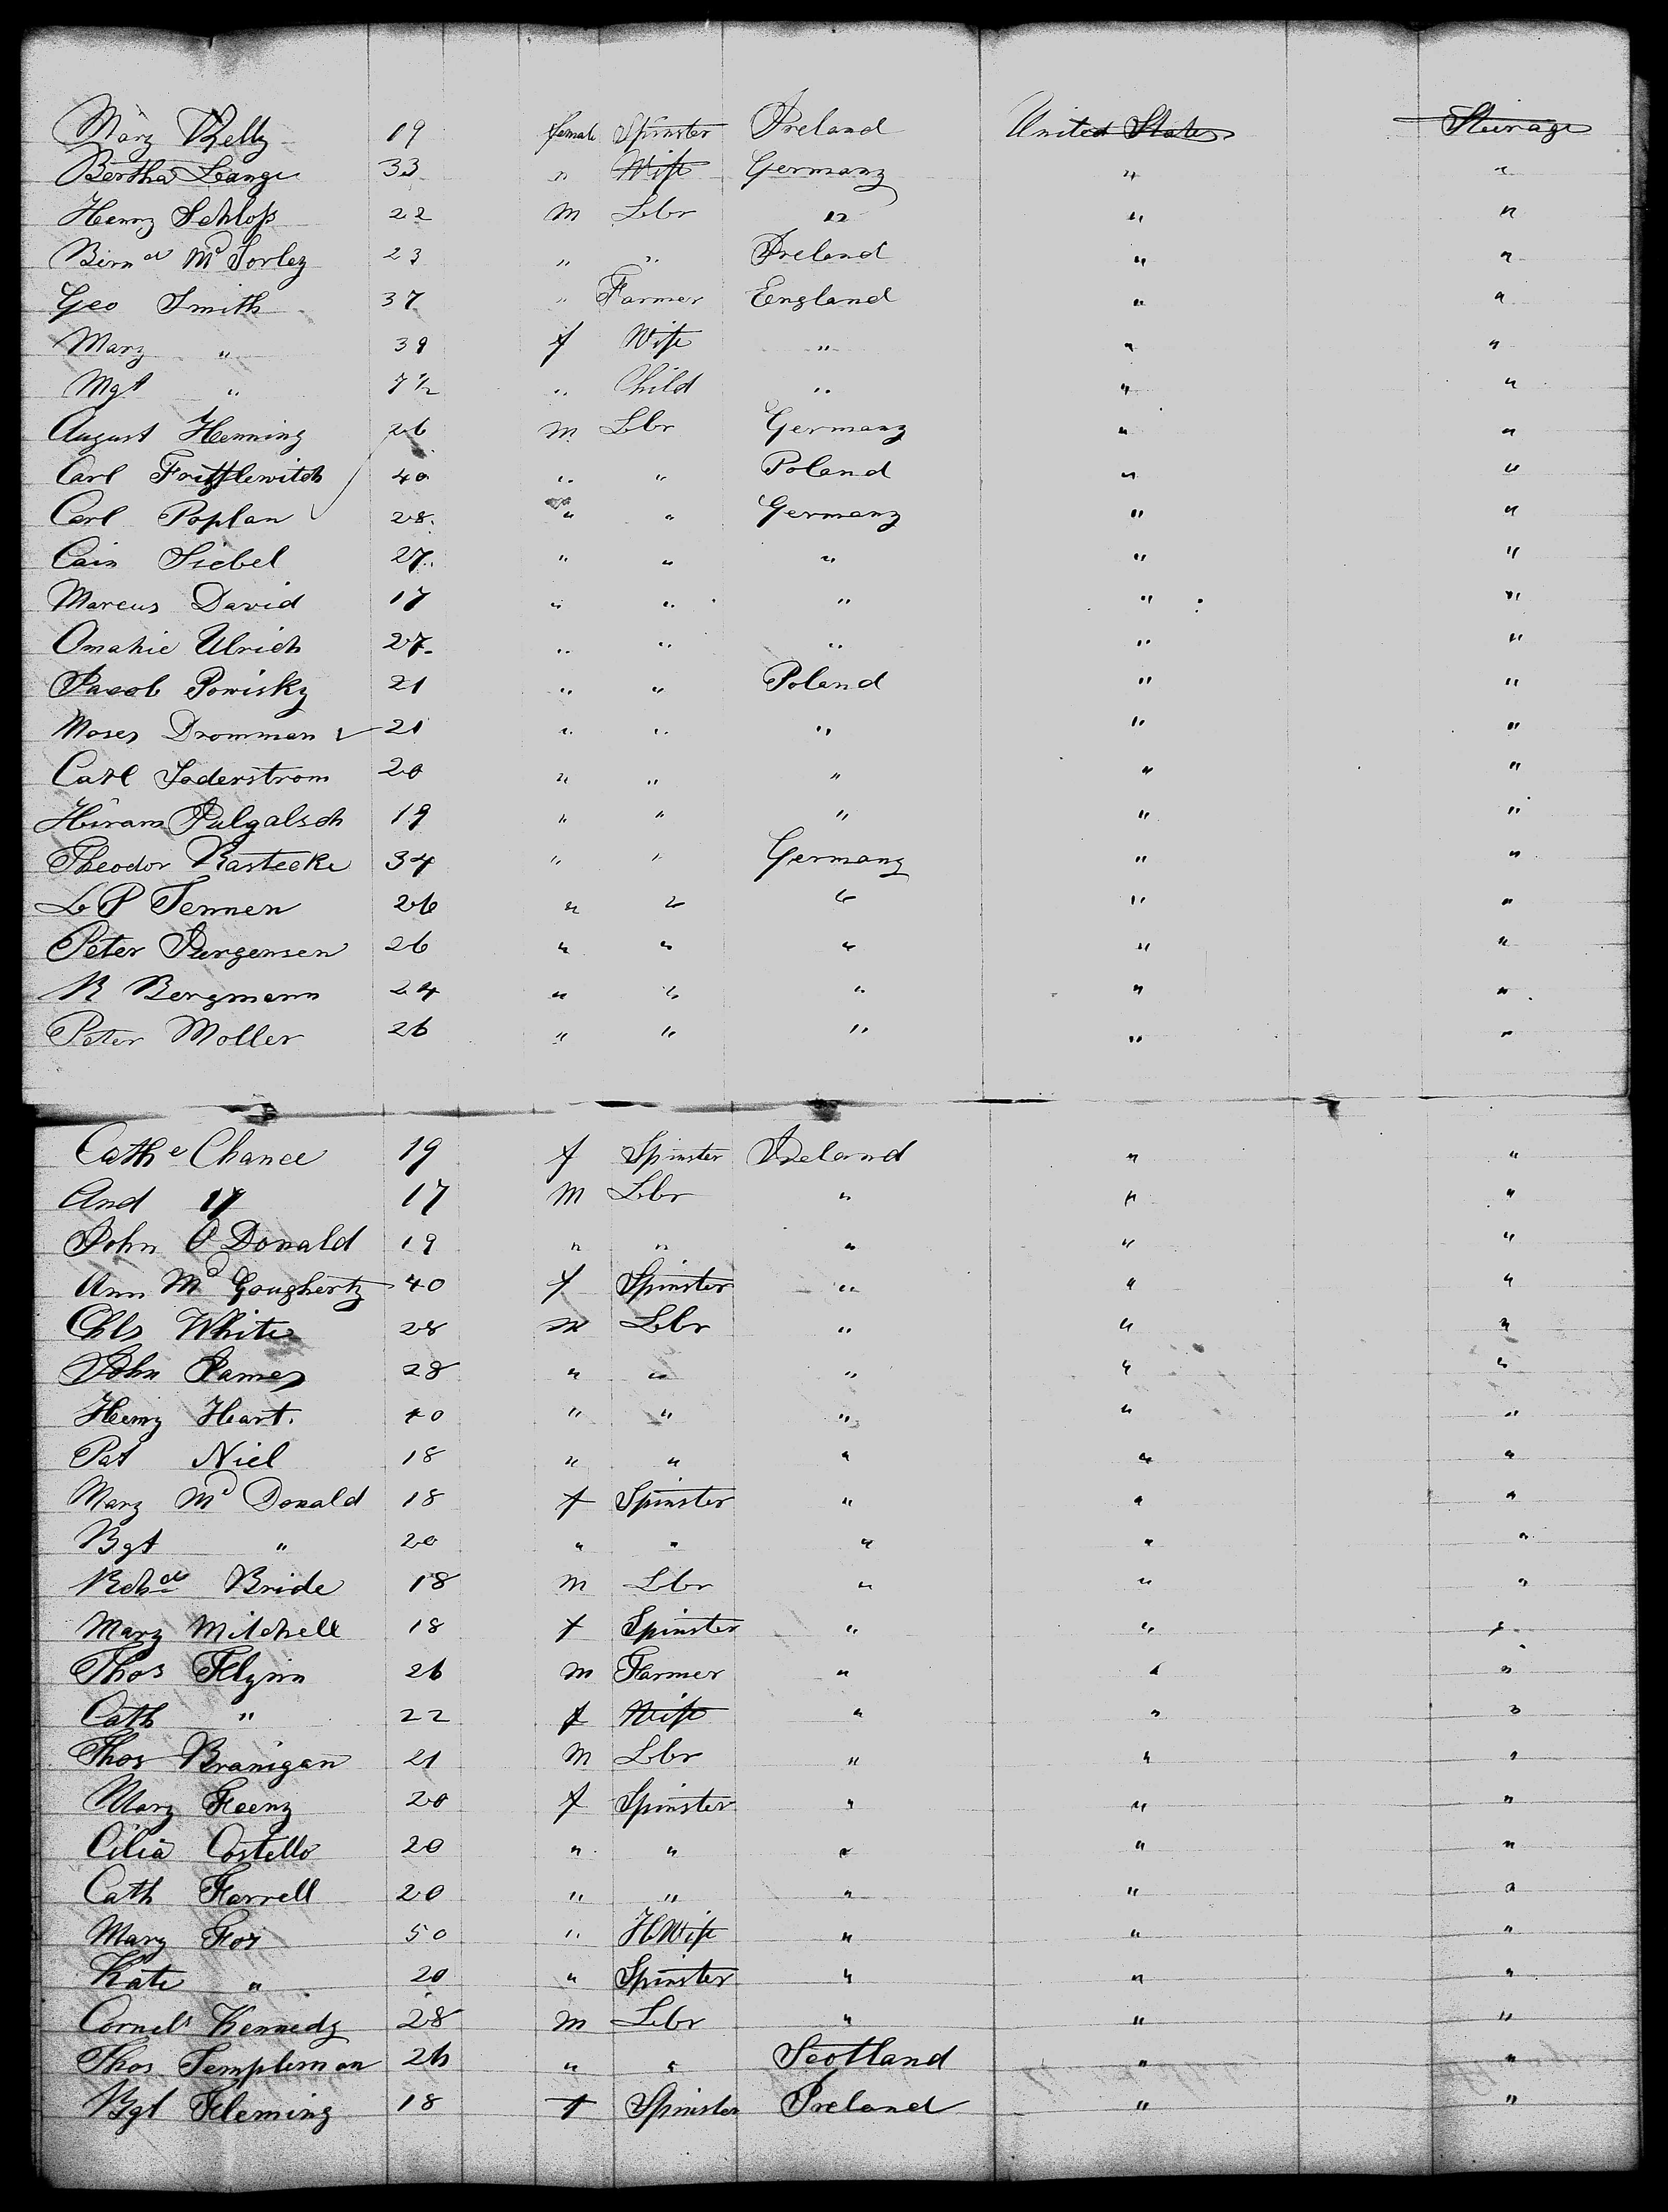 Mary Kelly 19 female Spinster Ireland United States Steerage
Bertha Lange 33 " Wife Germany " "
Henry Schloss 22 M Lbr " " "
Bernd McSorley 23 " " Ireland " "
Geo Smith 37 " Farmer England " "
Mary " 39 f Wife " " "
Mgt " 7½ " Child " " "
August Henning 26 M Lbr Germany " "
Carl 40 " " Poland " "
Carl Poplan 28 " " Germany " "
Cain Siebel 27 " " " " "
Marcus David 17 " " " " "
Omahie Ulrich 27 " " " " "
Jacob Powisky 21 " " Poland " "
Moses Dromman 21 " " " " "
Carl Soderstrom 20 " " " " "
Hiram 19 " " " " "
Theodor Kastecke 34 " " Germany " "
L P Tennen 26 " " " " "
Peter Jurgensen 26 " " " " "
R Bergmann 24 " " " " "
Peter Moller 26 " " " " "
Cathe Chance 19 f Spinster Ireland " "
And " 17 M Lbr " " "
John O Donald 19 " " " " "
Ann McGougherty 40 f Spinster " " "
Chls White 28 m Lbr " " "
John James 28 " " " " "
Henry Heart 40 " " " " "
Pat Niel 18 " " " " "
Mary McDonald 18 f Spinster " " "
Bgt " 20 " " " " "
Richd Bride 18 M Lbr " " "
Mary Mitchell 18 f Spinster " " "
Thos Flynn 26 M Farmer " " "
Cath " 22 f Wife " " "
Thos Branigan 21 M Lbr " " "
Mary Feeny 20 f Spinster " " "
Cilia Costello 20 " " " " "
Cath Farrell 20 " " " " "
Mary Fox 50 " HWife " " "
Kate " 20 " Spinster " " "
Cornels Kennedy 28 M Lbr " " "
Thos Templeman 26 " " Scotland " "
Bgt Fleming 18 f Spinster Ireland " "